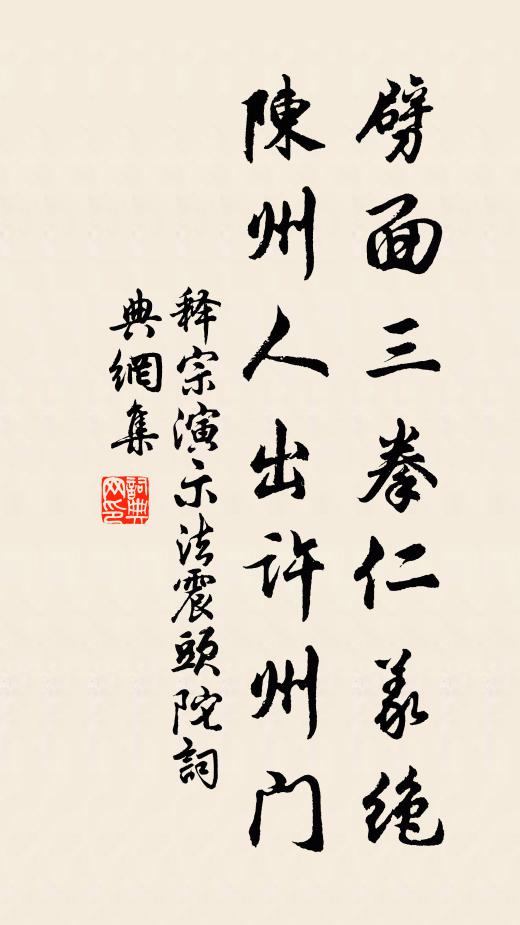 劈面三拳仁义绝
陳州人出许州门
释宗演示法震頭陀詞
典網集
詞典网印